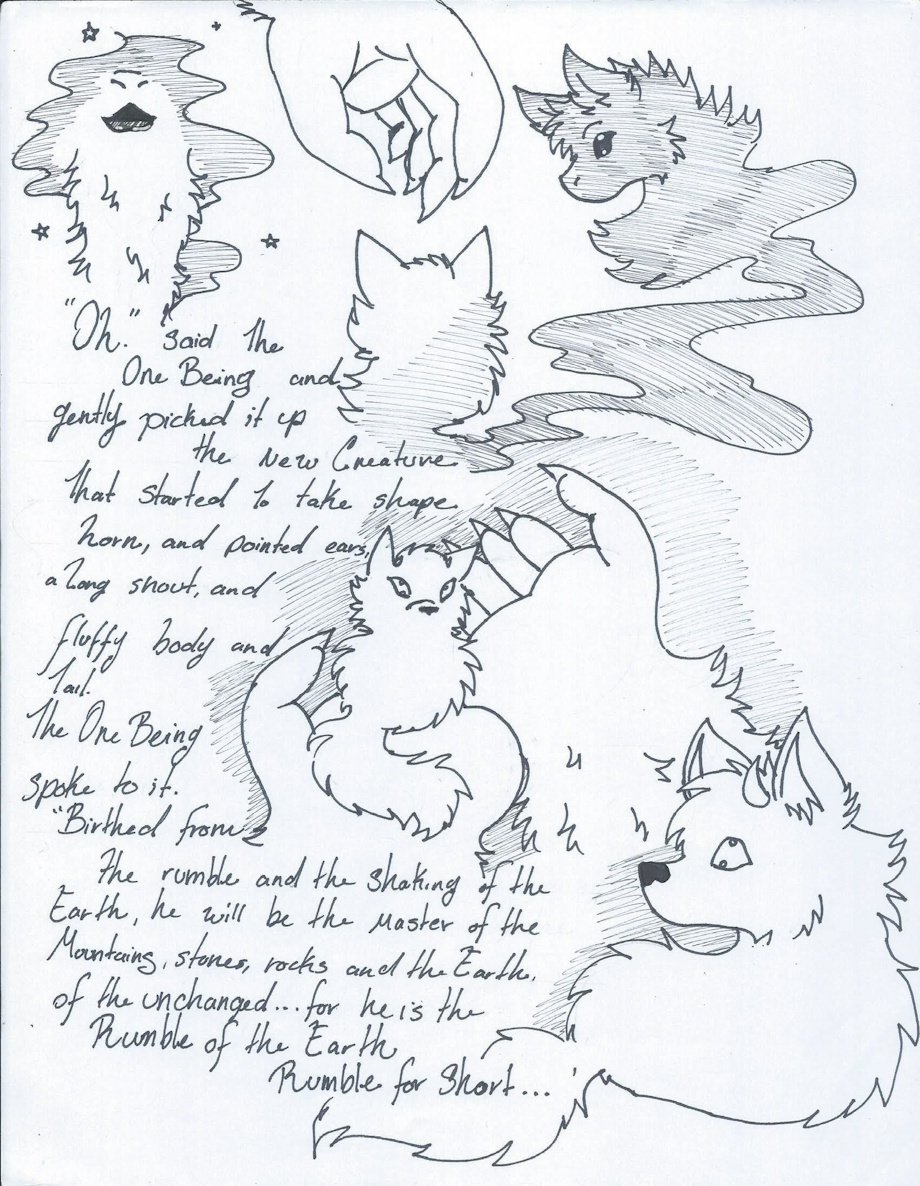 "Oh." said the
One Being and
gently picked it up
the New Creature
that started to take shape
horn, and pointed ears,
a long snout, and
fluffy body and
tail.
The One Being
spoke to it.
"Birthed from
the rumble and the shaking of the
Earth, he will be the Master of the
Mountains, stones, rocks and the Earth.
of the unchanged... for he is the
Rumble of the Earth
Rumble for Short...